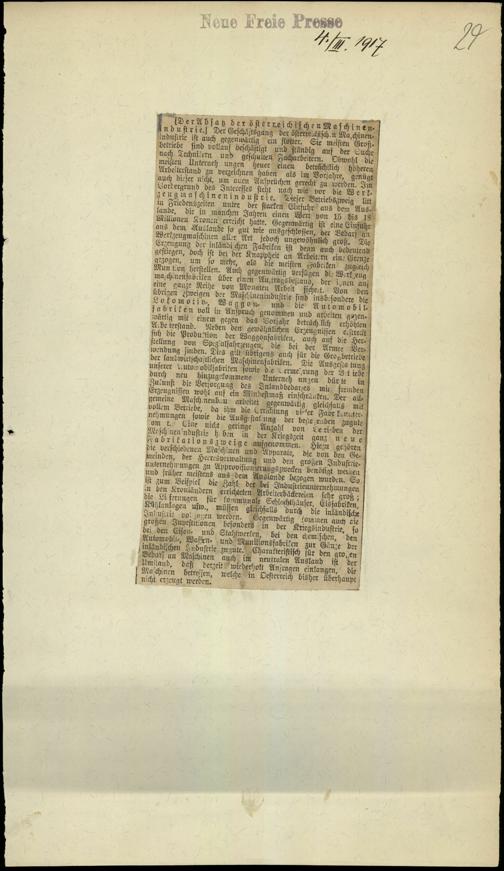 Neue Freie Presse
4./III. 1917
29
[Der Absatz der österreichischen Maschinen-
industrie.] Der Geschäftsgang der österreichischen Maschinen-
industrie ist auch gegenwärtig ein flotter. Die meisten Groß-
betriebe sind vollauf beschäftigt und ständig auf der Suche
nach Technikern und geschulten Facharbeitern. Obwohl die
meisten Unternehmungen heuer einen beträchtlich höheren
Arbeiterstand zu verzeichnen haben als im Vorjahre, genügt
auch dieser nicht, um allen Ansprüchen gerecht zu werden. Im
Vordergrund des Interesses steht nach wie vor die Werk-
zeugmaschinenindustrie. Dieser Betriebszweig litt
in Friedenszeiten unter der starken Einfuhr aus dem Aus-
lande, die in manchen Jahren einen Wert von 15 bis 18
Millionen Kronen erreicht hatte. Gegenwärtig ist eine Einfuhr
aus dem Auslande so gut wie ausgeschlossen, der Bedarf an
Werkzeugmaschinen aller Art jedoch ungewöhnlich groß. Die
Erzeugung der inländischen Fabriken ist denn auch bedeutend
gestiegen, doch ist bei der Knappheit an Arbeitern eine Grenze
gezogen, um so mehr, als die meisten Fabriken zugleich
Munition herstellen. Auch gegenwärtig verfügen die Werkzeug-
maschinenfabriken über einen Auftragsbestand, der ihnen auf
eine ganze Reihe von Monaten Arbeit sichert. Von den
übrigen Zweigen der Maschinenindustrie sind insbesondere die
Lokomotiv-, Waggon- und die Automobil-
fabriken voll in Anspruch genommen und arbeiten gegen-
wärtig mit einem gegen das Vorjahr beträchtlich erhöhten
Arbeiterstand. Neben den gewöhnlichen Erzeugnissen erstreckt
sich die Produktion der Waggonfabriken, auch auf die Her-
stellung von Spezialfahrzeugen, die bei der Armee Ver-
wendung finden. Dies gilt übrigens auch für die Großbetriebe
der landwirtschaftlichen Maschinenfabriken. Die Ausgestaltung
unserer Automobilfabriken sowie die Vermehrung der Betriebe
durch neu hinzugekommene Unternehmungen dürfte in
Zukunft die Versorgung des Inlandbedarfes mit fremden
Erzeugnissen wohl auf ein Mindestmaß einschränken. Der all-
gemeine Maschinenbau arbeitet gegenwärtig gleichfalls mit
vollem Betriebe, da ihm die Errichtung vieler Fabriksunter-
nehmungen sowie die Ausgestaltung der bestehenden zugute
kommt. Eine nicht geringe Anzahl von Betrieben der
Maschinenindustrie haben in der Kriegszeit ganz neue
Fabrikationszweige aufgenommen. Hiezu gehören
die verschiedenen Maschinen und Apparate, die von den Ge-
meinden, der Heeresverwaltung und den großen Industrie-
unternehmungen zu Approvisionierungszwecken benötigt werden
und früher meistens aus dem Auslande bezogen wurden. So
ist zum Beispiel die Zahl der bei Industrieunternehmungen
in den Kronländern errichteten Arbeiterbäckereien sehr groß;
die Lieferungen für kommunale Schlachthäuser, Eisfabriken,
Kühlanlagen usw., müssen gleichfalls durch die inländische
Industrie vollzogen werden. Gegenwärtig kommen auch die
großen Investitionen besonders in der Kriegsindustrie, so
bei den Eisen- und Stahlwerken, bei den chemischen, den
Automobil-, Waffen- und Munitionsfabriken zur Gänze der
inländischen Industrie zugute. Charakteristisch für den großen
Bedarf an Maschinen auch im neutralen Ausland ist der
Umstand, daß derzeit wiederholt Anfragen einlangen, die
Maschinen betreffen, welche in Oesterreich bisher überhaupt
nicht erzeugt werden.